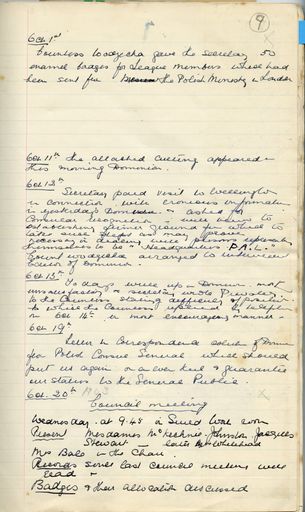 9
Oct. 1st
Countess Wodzicka gave the secretary 50
enamel badges for League members which had
been sent for the Polish Ministry in London
Oct. 11th the attached cutting appeared in
this morning Dominion.
Oct. 12th
Secretary paid visit to Wellington
in connection with erroneous information
in yesterday's Dominion asked for
Consular recognition
establishing firmer ground on which to
take such steps as may
in dealing with persons representing
themselves to be "Headquarters P.A.L."
Count Wodzicka arranged to interview
Editor of Dominion.
Oct. 13th
To day write up in Dominion most
unsatisfactory secretary wrote privately
to the Countess stating
to which the Countess replied by
on Oct 16th in most encouraging manner.
Oct. 19th
Letter in Correspondence column of Dominion
from Polish Consul General which should
put us again on even keel & guarantee
our status to the General Public.
Oct. 20th
Council meeting
Wednesday at 9.45 in
Present Mesdames McKechnie Johnston Jacques
Stewart
Mrs Bale in the Chair.
Records since last Council meeting were
read.
Badges & their allocation discussed